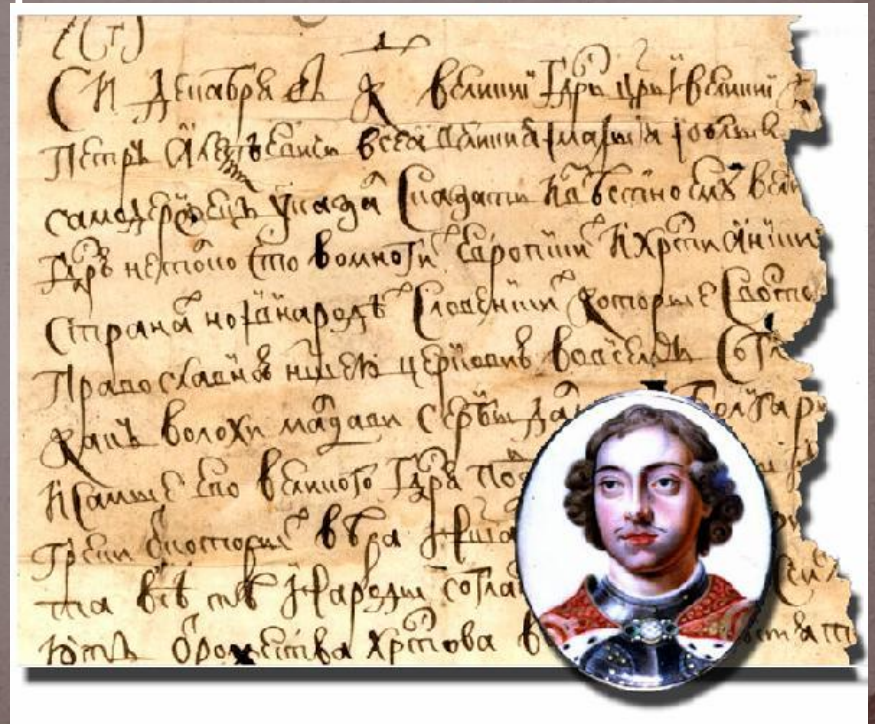 декабря въ К великий гдрь црь i великий
Петръ Алеѯѣевичь всеа великия i малыя i бѣлыя
самодержецъ указал сказать извѣстно ему вели
гдрю не токмо что во многих европских християнских
странах но i в народѣх словенских которые с восто
православною нашею церковию во всемъ согл
какъ волохи молдави сербы дал болгар
и самые его великого гдря под
греки от которых вѣра наша
та всѣ тѣ народы согла
ютъ от рожества хрстова в